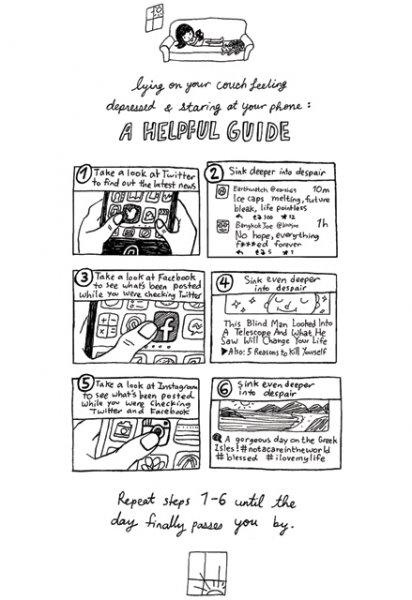 lying on your couch feeling
depressed & staring at your phone:
A HELPFUL GUIDE
1 Take a look at Twitter
to find out the latest news
2 Sink deeper into despair
Earthwatch @earthes 10m
Ice caps melting, future
bleak, life pointless
300 12
BangkokJoe 1h
No hope, everything
f***ed forever
5 1
3 Take a look at Facebook
to see what's been posted
while you were checking Twitter
4 Sink even deeper
into despair
This Blind Man Looked Into
A Telescope And What He
Saw Will Change Your Life
▶ Also: 5 Reasons to Kill Yourself
5 Take a look at Instagram
to see what's been posted
while you were checking
Twitter and Facebook
6 Sink even deeper
into despair
A gorgeous day on the Greek
Isles! #notacareintheworld
#blessed #ilovemylife
Repeat steps 1-6 until the
day finally passes you by.